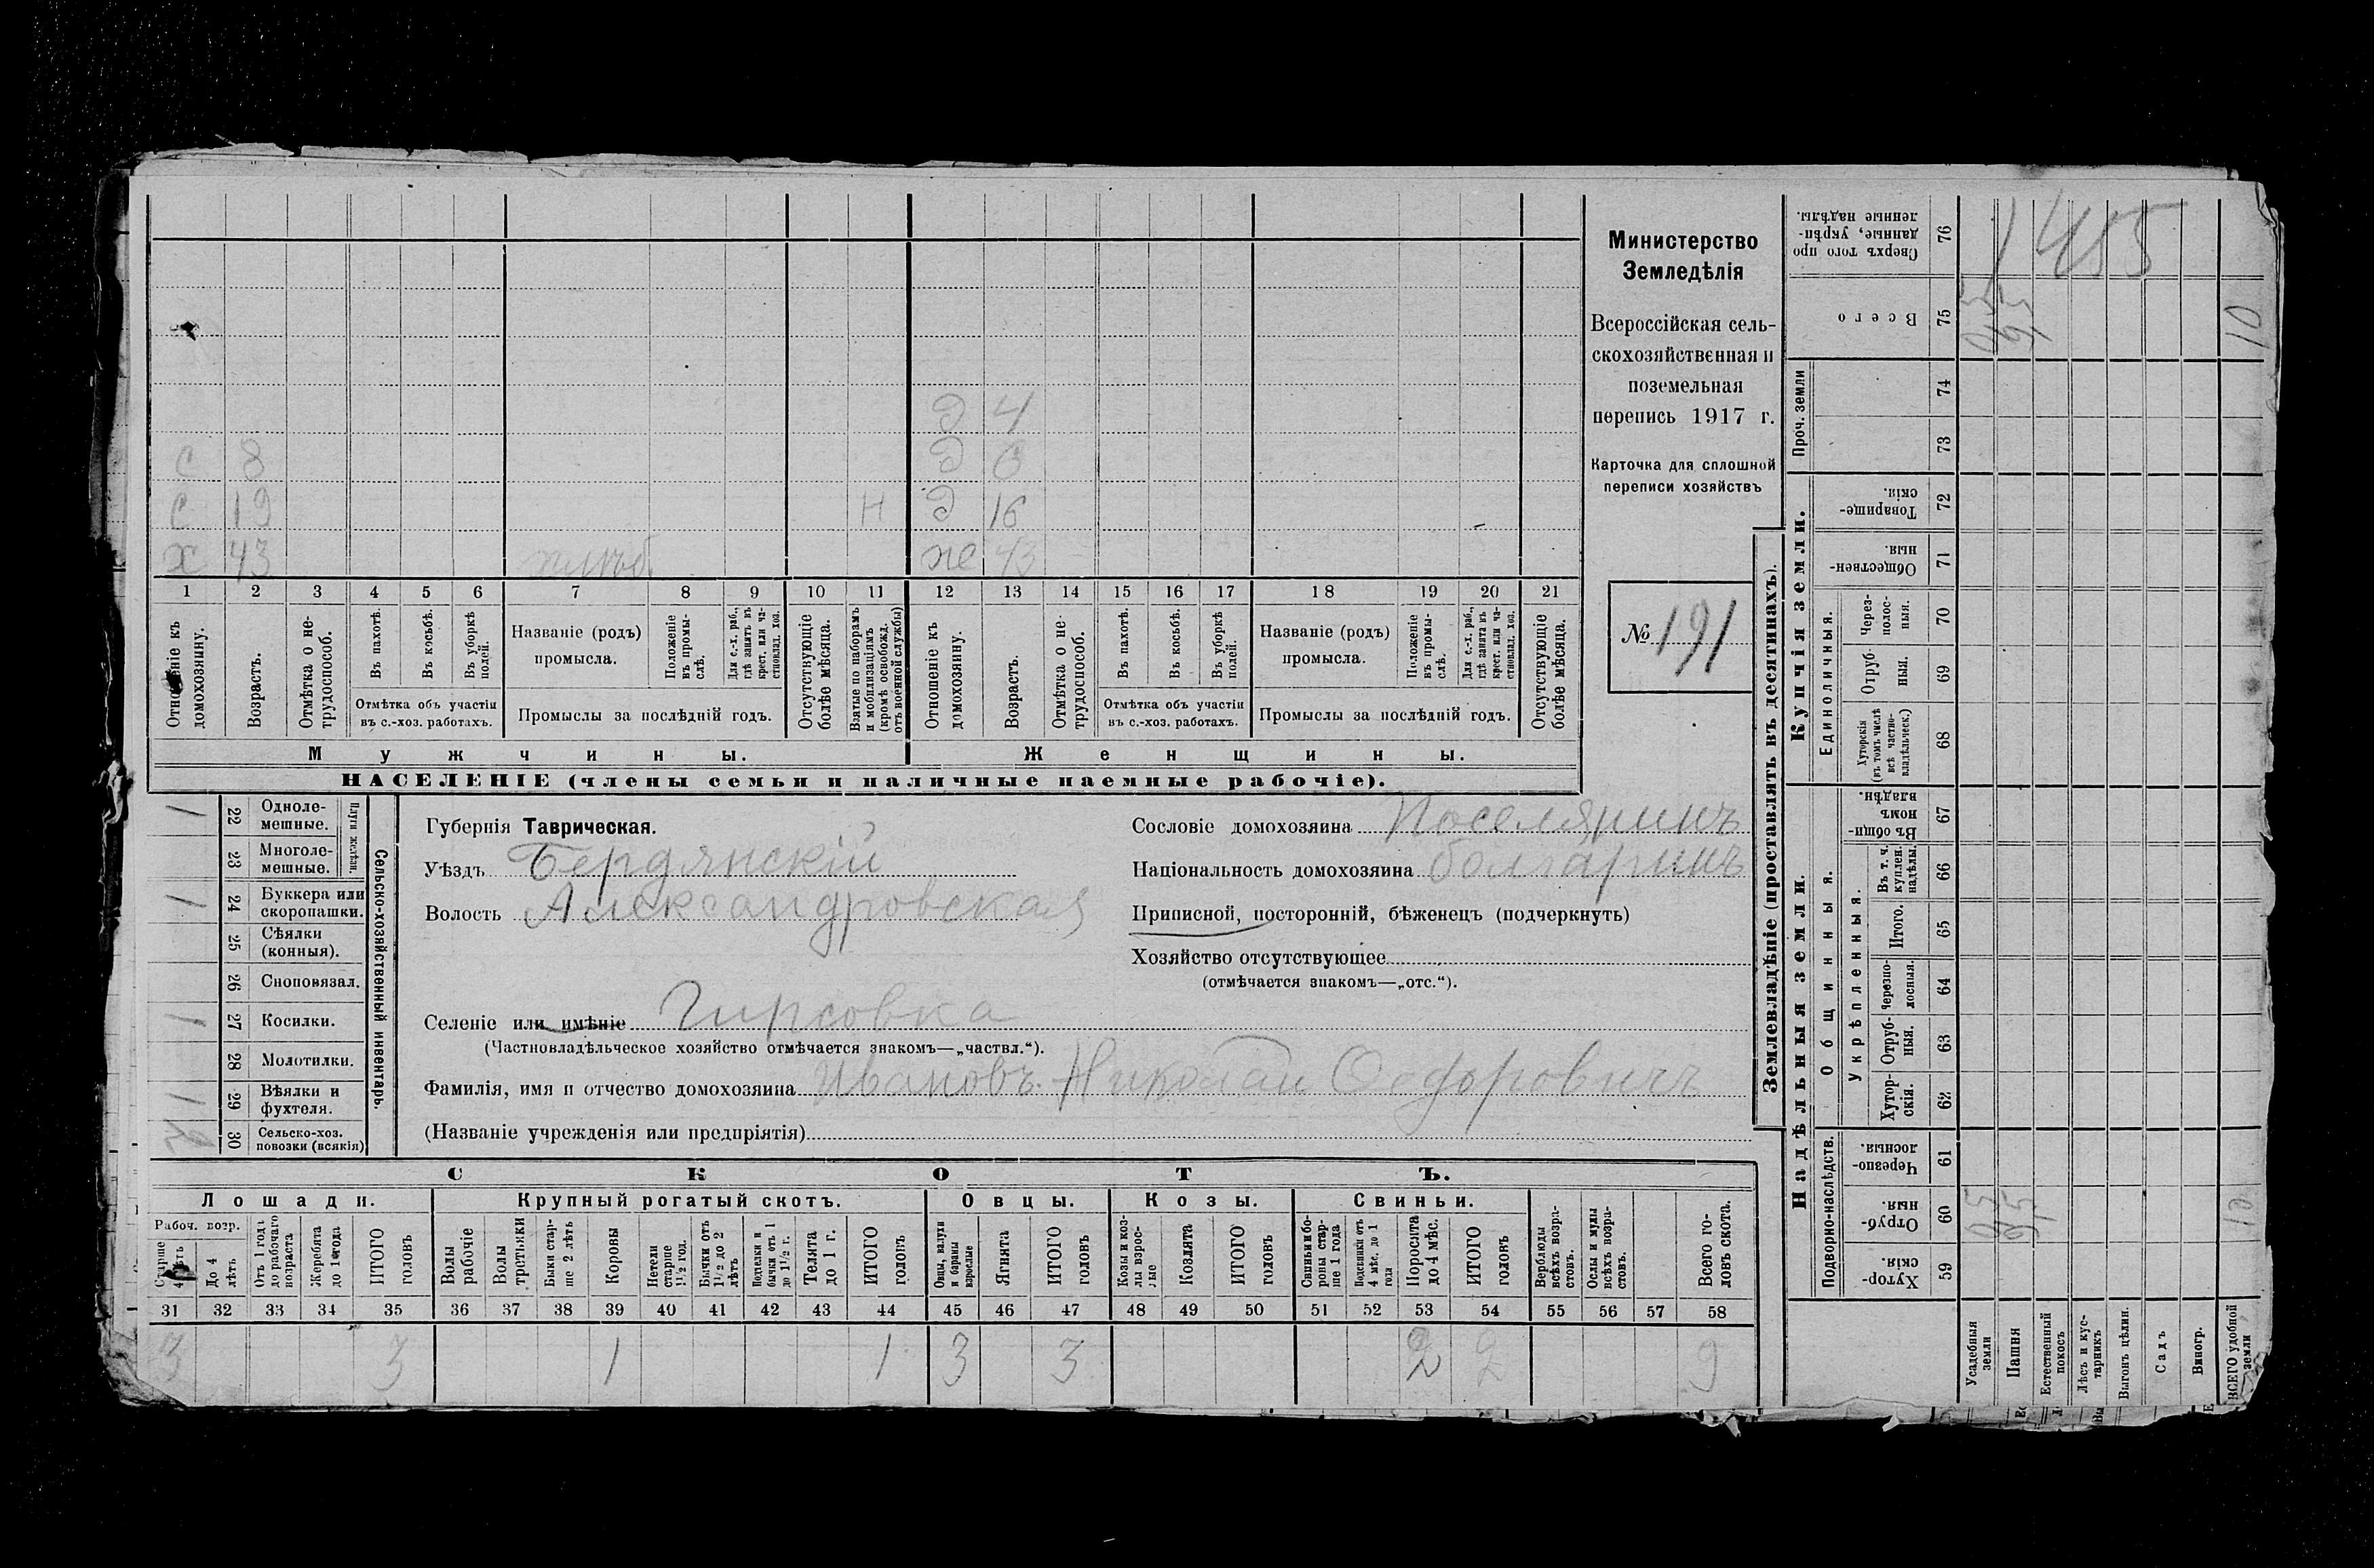 Министерство
Земледѣлія
Всероссійская сель-
скохозяйственная и
поземельная
перепись 1917 г.
Карточка для сплошной
переписи хозяйствъ
№ 191
Д 4
С 8 Д 6
С 19 Н Д 16
Х 43 хлѣб. же 43
1 2 3 4 5 6 7 8 9 10 11 12 13 14 15 16 17 18 19 20 21
Отношеніе къ домохозяину.
Возрастъ.
Отмѣтка о не-трудоспособ.
Въ пахотѣ.
Въ косьбѣ.
Въ уборкѣ полей.
Отмѣтка объ участіи
въ с.-хоз. работахъ.
Названіе (родъ)
промысла.
Положеніе въ промы-слѣ.
Для с.-х. раб., гдѣ занятъ въ крест. или ча-стновлад. хоз.
Промыслы за послѣдній годъ.
Отсутствующіе болѣе мѣсяца.
Взятые по наборамъ и мобилизаціямъ (кромѣ освобожд. отъ военной службы)
Отношеніе къ домохозяину.
Возрастъ.
Отмѣтка о не-трудоспособ.
Въ пахотѣ.
Въ косьбѣ.
Въ уборкѣ полей.
Отмѣтка объ участіи
въ с.-хоз. работахъ.
Названіе (родъ)
промысла.
Положеніе въ промы-слѣ.
Для с.-х. раб., гдѣ занята въ крест. или ча-стновлад. хоз.
Промыслы за послѣдній годъ.
Отсутствующіе болѣе мѣсяца.
Мужчины. Женщины.
НАСЕЛЕНІЕ (члены семьи и наличные наемные рабочіе).
Сельско-хозяйственный инвентарь.
Плуги желѣзн.
1 22 Одноле-мешные.
23 Многоле-мешные.
1 24 Буккера или скоропашки.
25 Сѣялки (конныя).
26 Сноповязал.
1 27 Косилки.
28 Молотилки.
1 29 Вѣялки и фухтеля.
30 Сельско-хоз. повозки (всякія)
Губернія Таврическая.
Уѣздъ Бердянскій
Волость Александровская
Сословіе домохозяина Поселянинъ
Національность домохозяина болгаринъ
Приписной, посторонній, бѣженецъ (подчеркнуть)
Хозяйство отсутствующее
(отмѣчается знакомъ—„отс.“).
Селеніе или имѣніе Гирсовка
(Частновладѣльческое хозяйство отмѣчается знакомъ—„частвл.“).
Фамилія, имя и отчество домохозяина Ивановъ Николай Федоровичъ
(Названіе учрежденія или предпріятія)
СКОТЪ.
Лошади. Крупный рогатый скотъ. Овцы. Козы. Свиньи.
Рабоч. возр.
Старше 4 лѣтъ
До 4 лѣтъ
Отъ 1 года до рабочаго возраста
Жеребята до 1 года
ИТОГО головъ
Волы рабочіе
Волы третьяки
Быки стар-ше 2 лѣтъ
Коровы
Нетели старше 1½ год.
Бычки отъ 1½ до 2 лѣтъ
Подтелки и бычки отъ 1 до 1½ г.
Телята до 1 г.
ИТОГО головъ
Овцы, валухи и бараны взрослые
Ягнята
ИТОГО головъ
Козы и коз-лы взрос-лые
Козлята
ИТОГО головъ
Свиньи и бо-ровы стар-ше 1 года
Подсвинки отъ 4 мѣс. до 1 года
Поросята до 4 мѣс.
ИТОГО головъ
Верблюды всѣхъ возра-стовъ.
Ослы и мулы всѣхъ возра-стовъ.
Всего го-ловъ скота.
31 32 33 34 35 36 37 38 39 40 41 42 43 44 45 46 47 48 49 50 51 52 53 54 55 56 57 58
3 3 1 1 3 3 2 2 9
Землевладѣніе (проставлять въ десятинахъ).
Купчія земли.
Надѣльныя земли.
Сверхъ того про-данные, укрѣп-ленные надѣлы. 76 1455
Всего 75 10
Проч. земли 74
73
Товарище-скія. 72
Обществен-ныя. 71
Единоличныя.
Через-полос-ныя. 70
Отруб-ныя. 69
Хуторскія (въ томъ числѣ всѣ частно-владѣльческ.) 68
Общинныя.
Въ общи-номъ владѣн. 67
Укрѣпленныя.
Въ т. ч. куплен. надѣлы. 66
Итого. 65
Черезпо-лосныя. 64
Отруб-ныя. 63
Хутор-скія. 62
Подворно-наслѣдств.
Черезпо-лосныя. 61
Отруб-ныя. 60 05 95 10
Хутор-скія. 59
Усадебныя земли
Пашня
Естественный покосъ
Лѣсъ и кус-тарникъ
Выгонъ цѣлин.
Садъ
Виногр.
ВСЕГО удобной земли